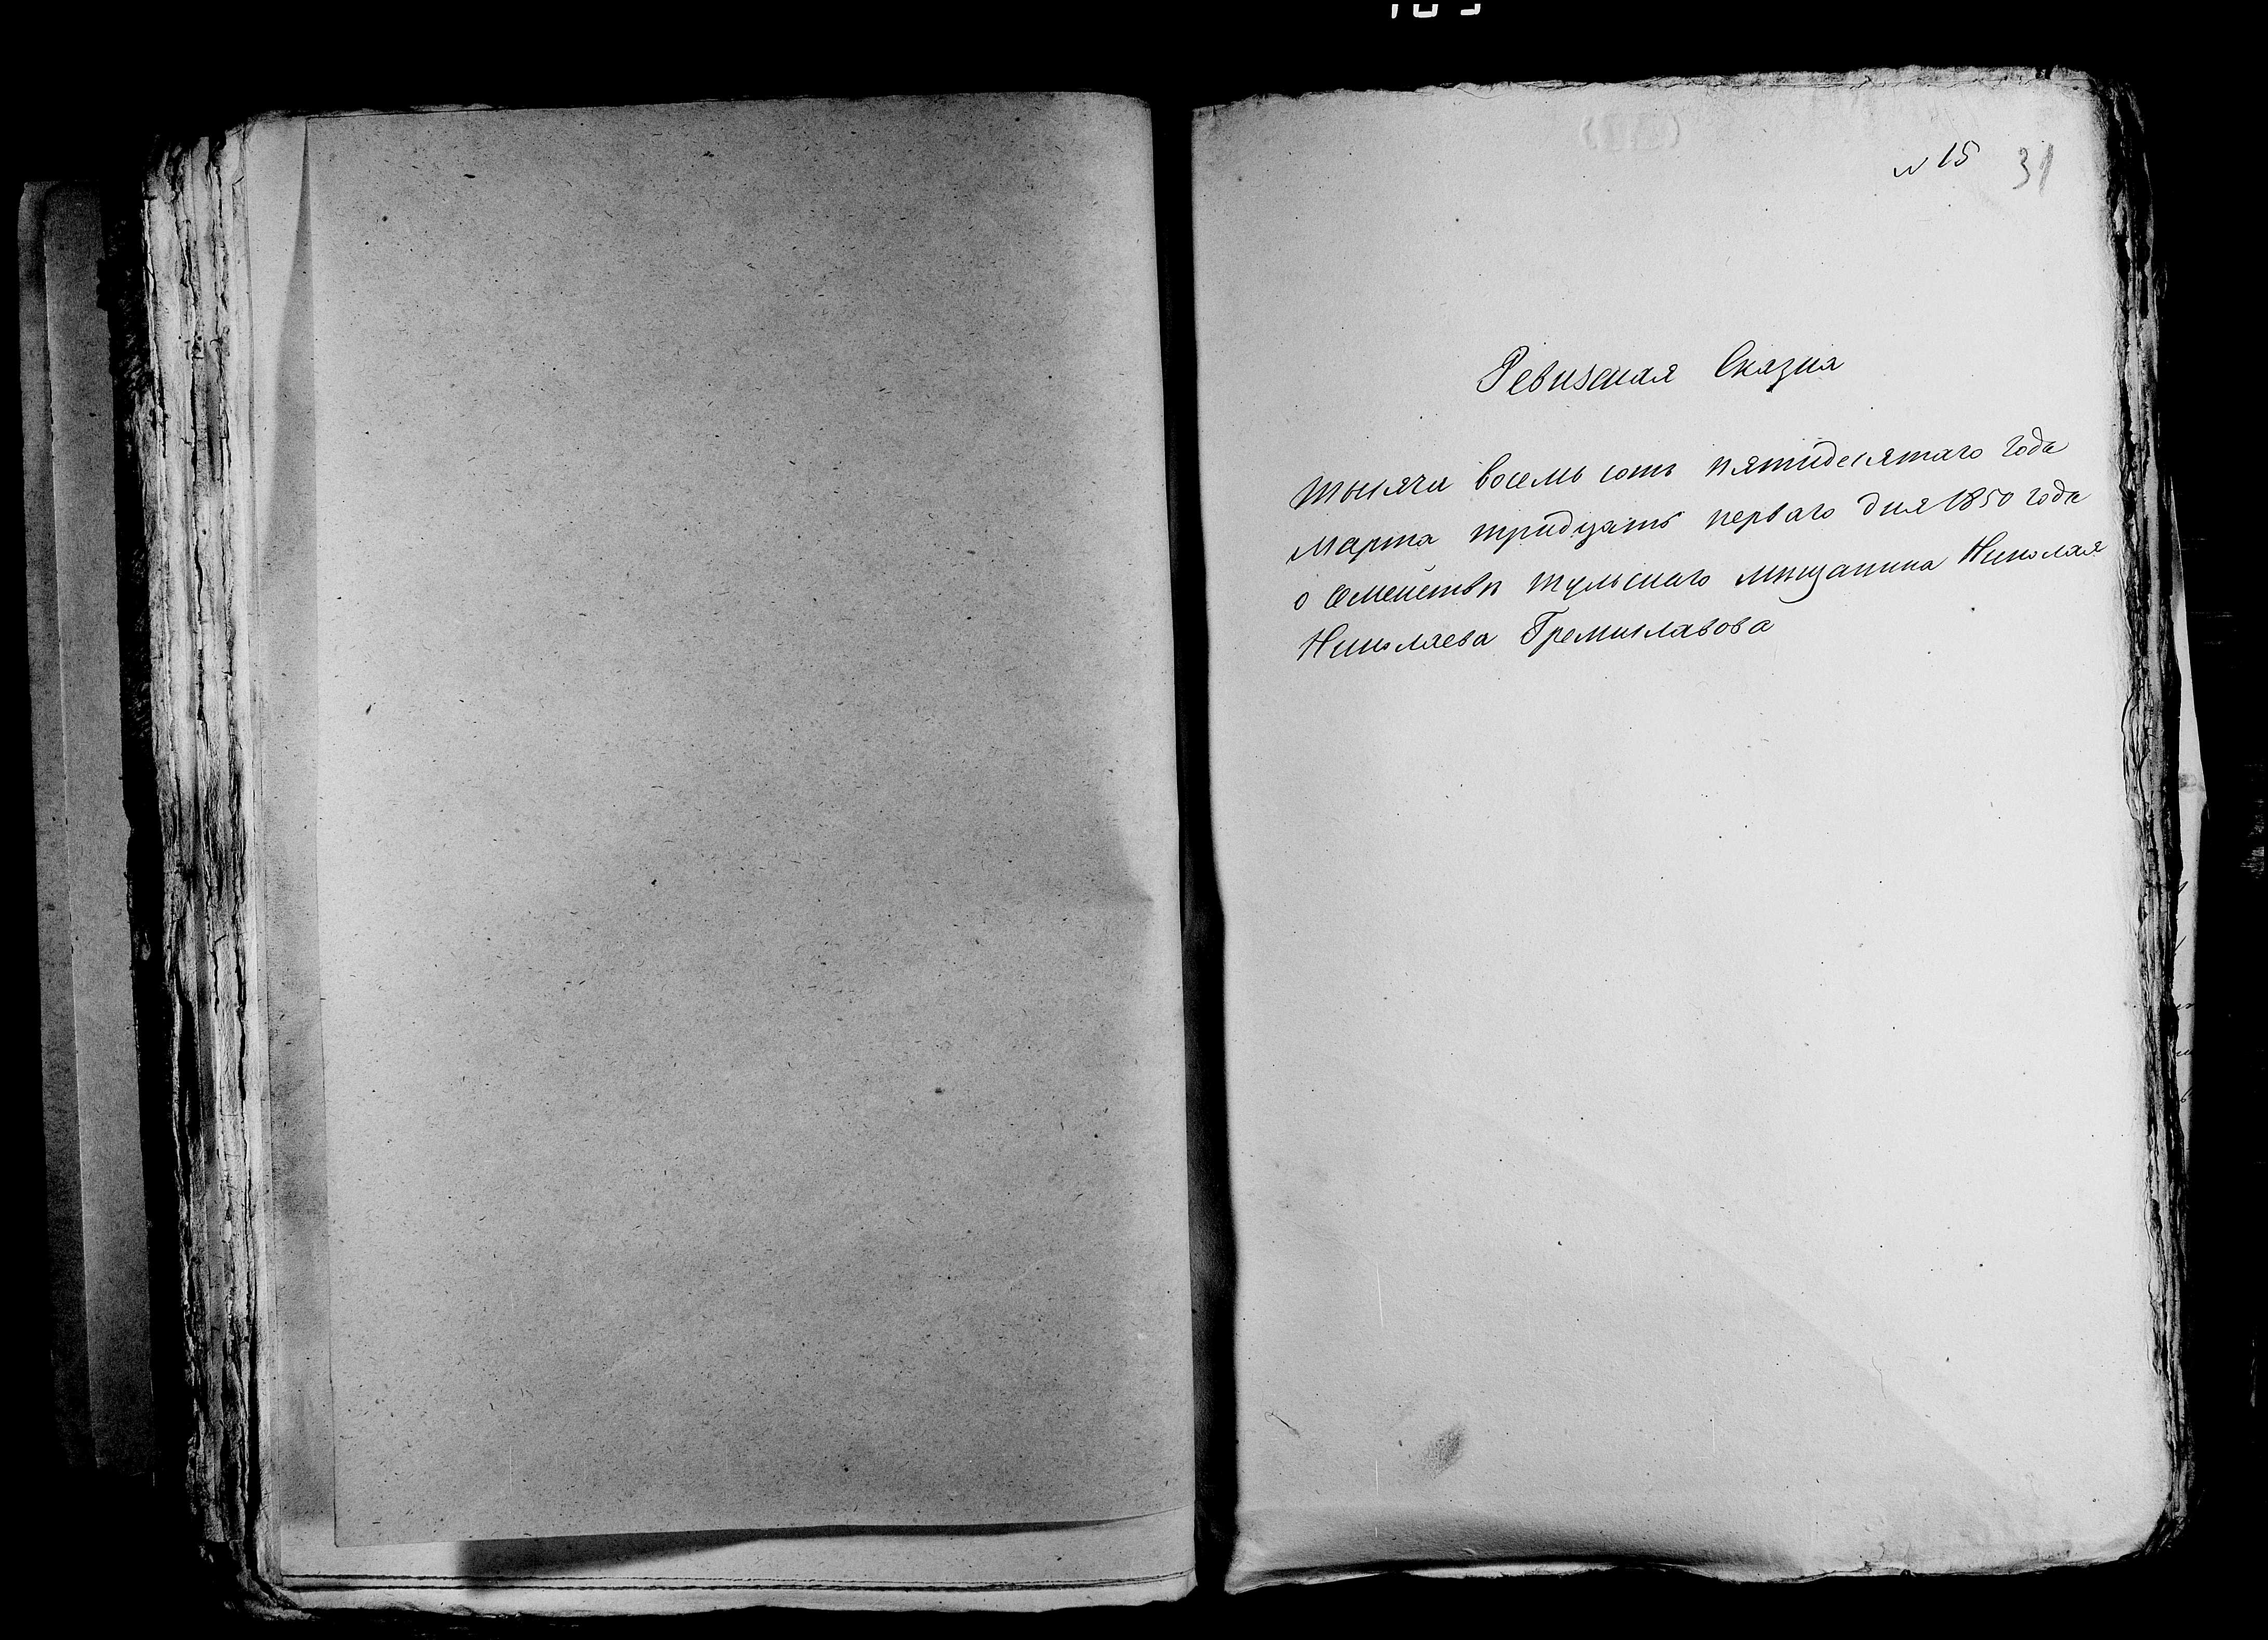 № 15 31
Ревизская Сказка
тысяча восемь сотъ пятидесятаго года
Марта тридцать перваго дня 1850 года
о Семействѣ тульскаго мещанина Николая
Николаева Гремиславова